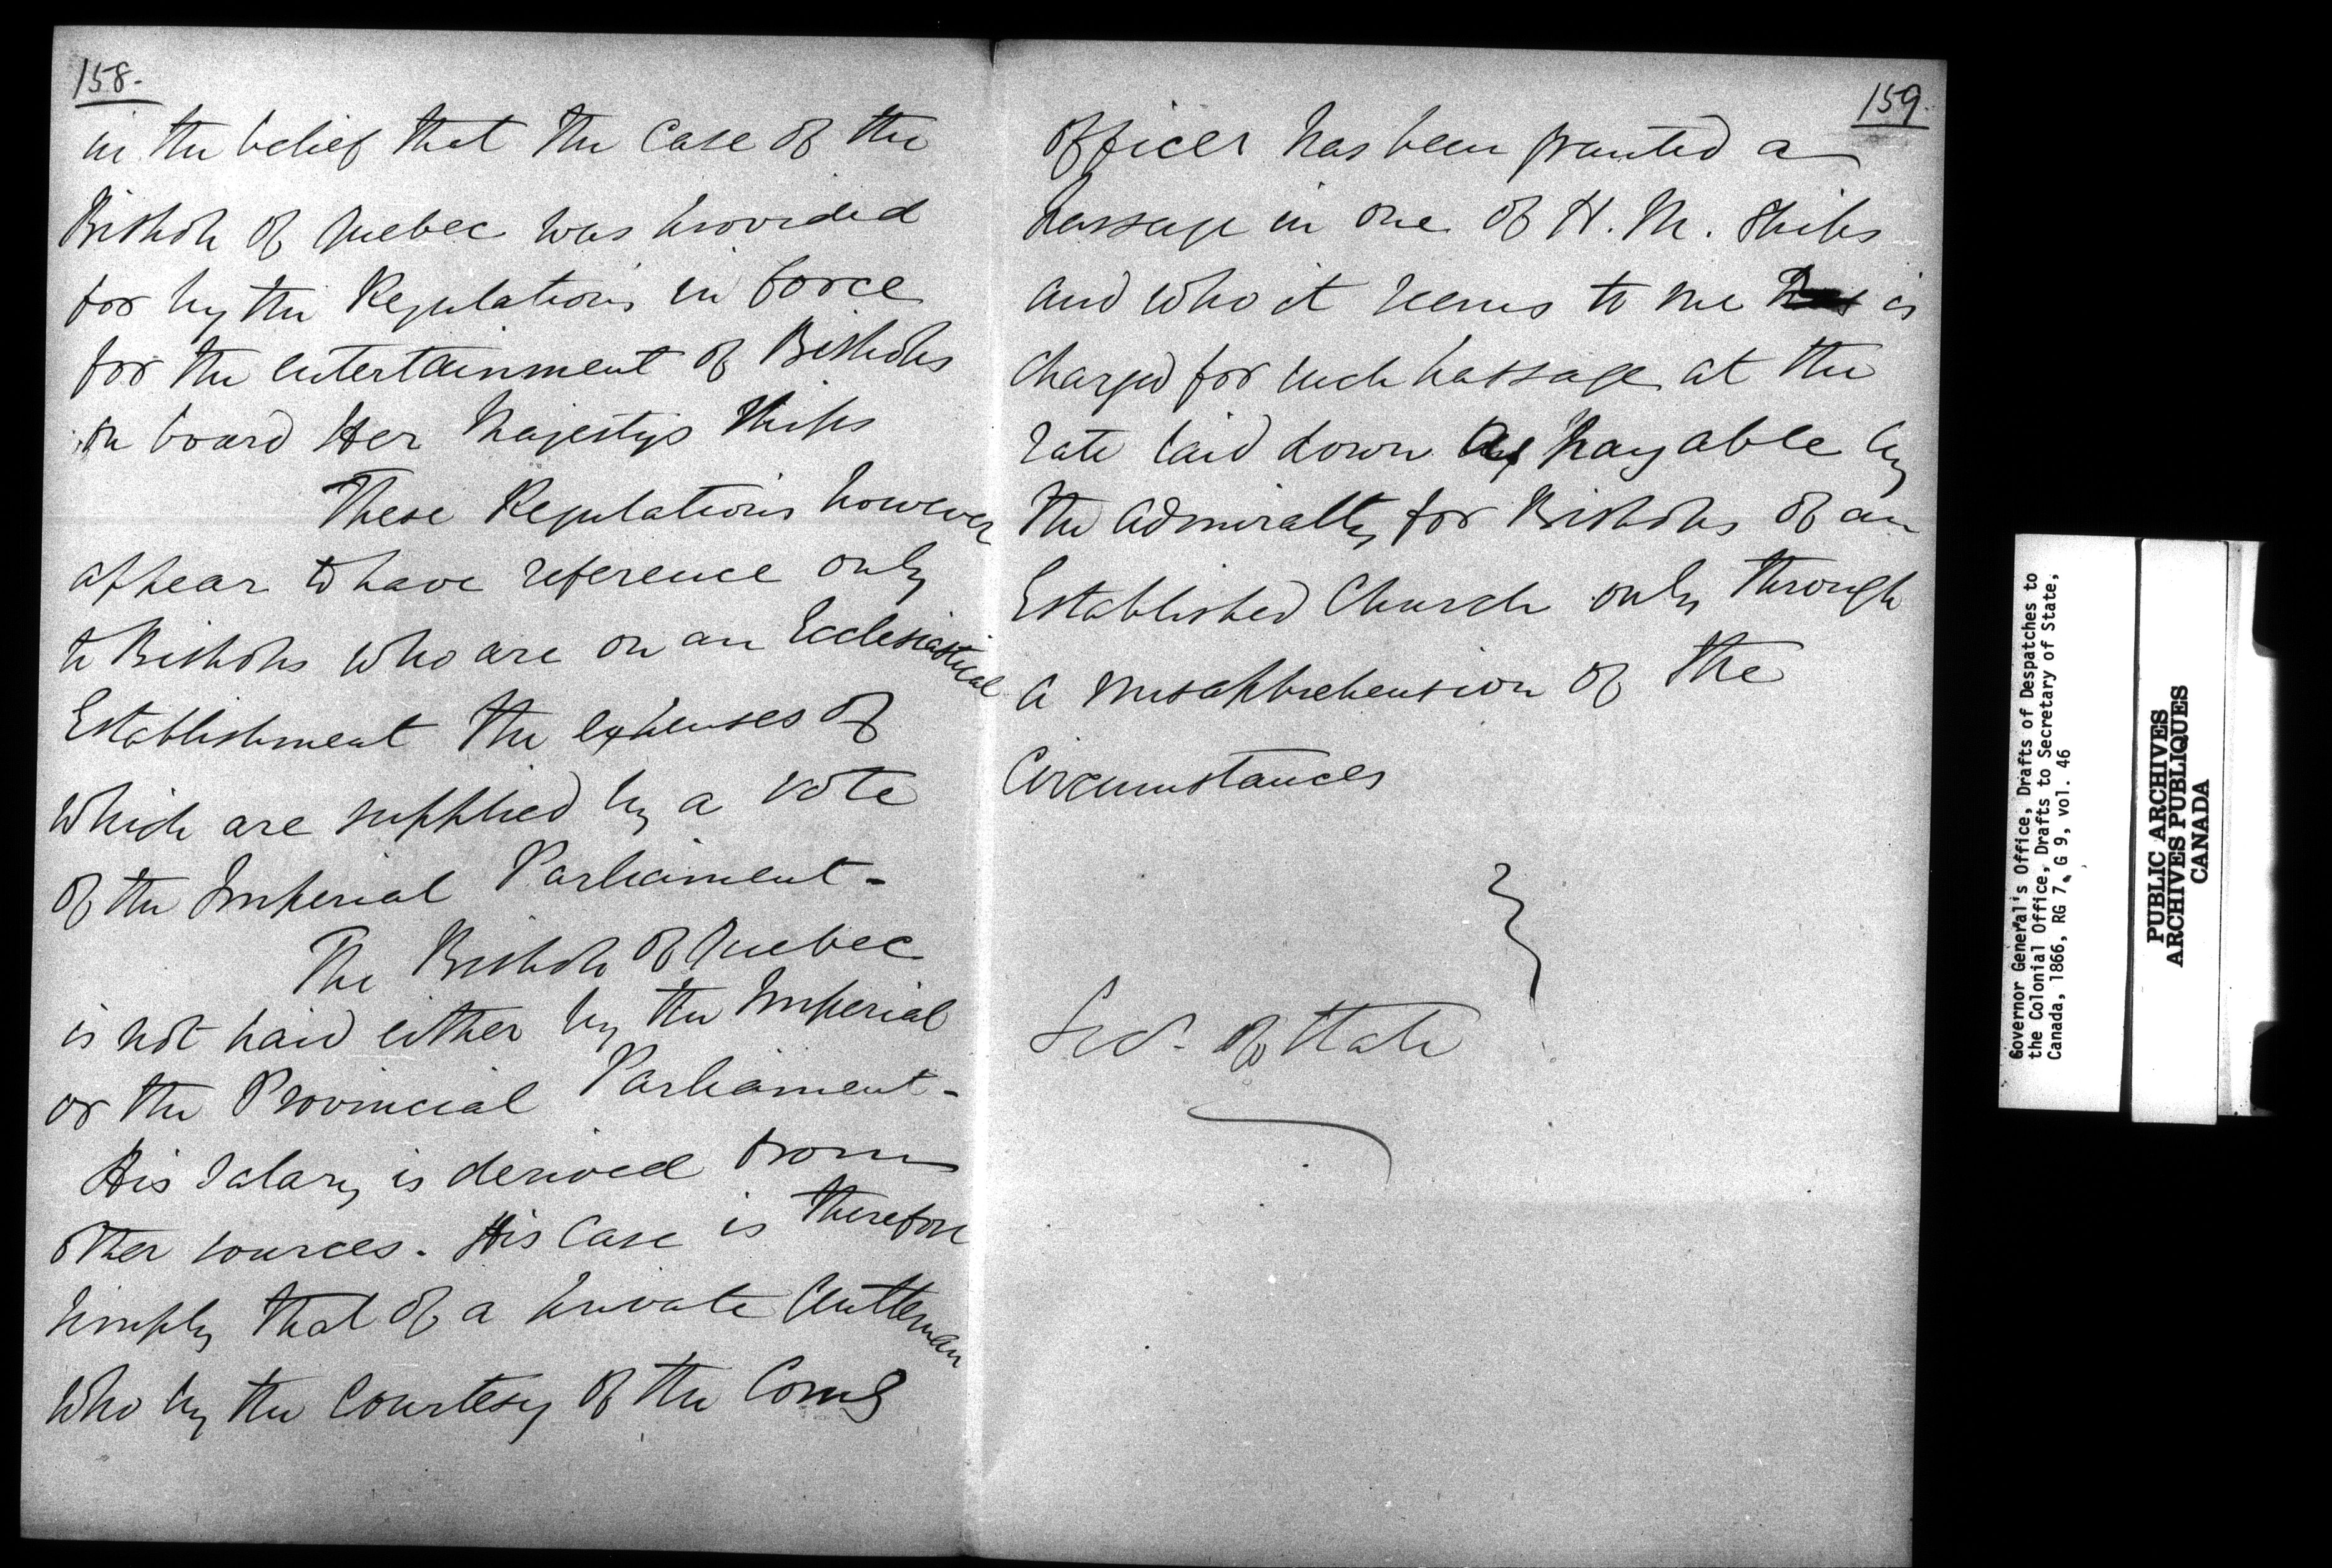 158.
in the belief that the case of the
Bishop of Quebec was provided
for by the Regulations in force
for the entertainment of Bishops
on board Her Majestys Ships
These Regulations however
appear to have reference only
to Bishops who are on an Ecclesiastical
Establishment the expenses of
which are supplied by a vote
of the Imperial Parliament -
The Bishop of Quebec
is not paid either by the Imperial
or the Provincial Parliament -
His Salary is derived from
other sources. His Case is therefore
simply that of a private Gentleman
who by the Courtesy of the Comg
159.
Officer has been granted a
passage in one of H. M. Ships
and who it seems to me is
charged for such passage at the
rate laid down as payable by
the Admiralty for Bishops of an
Established Church only through
a misapprehension of the
Circumstances
Secy. of State
Governor General's Office, Drafts of Despatches to
the Colonial Office, Drafts to Secretary of State,
Canada, 1866, RG 7, G 9, vol. 46
PUBLIC ARCHIVES
ARCHIVES PUBLIQUES
CANADA